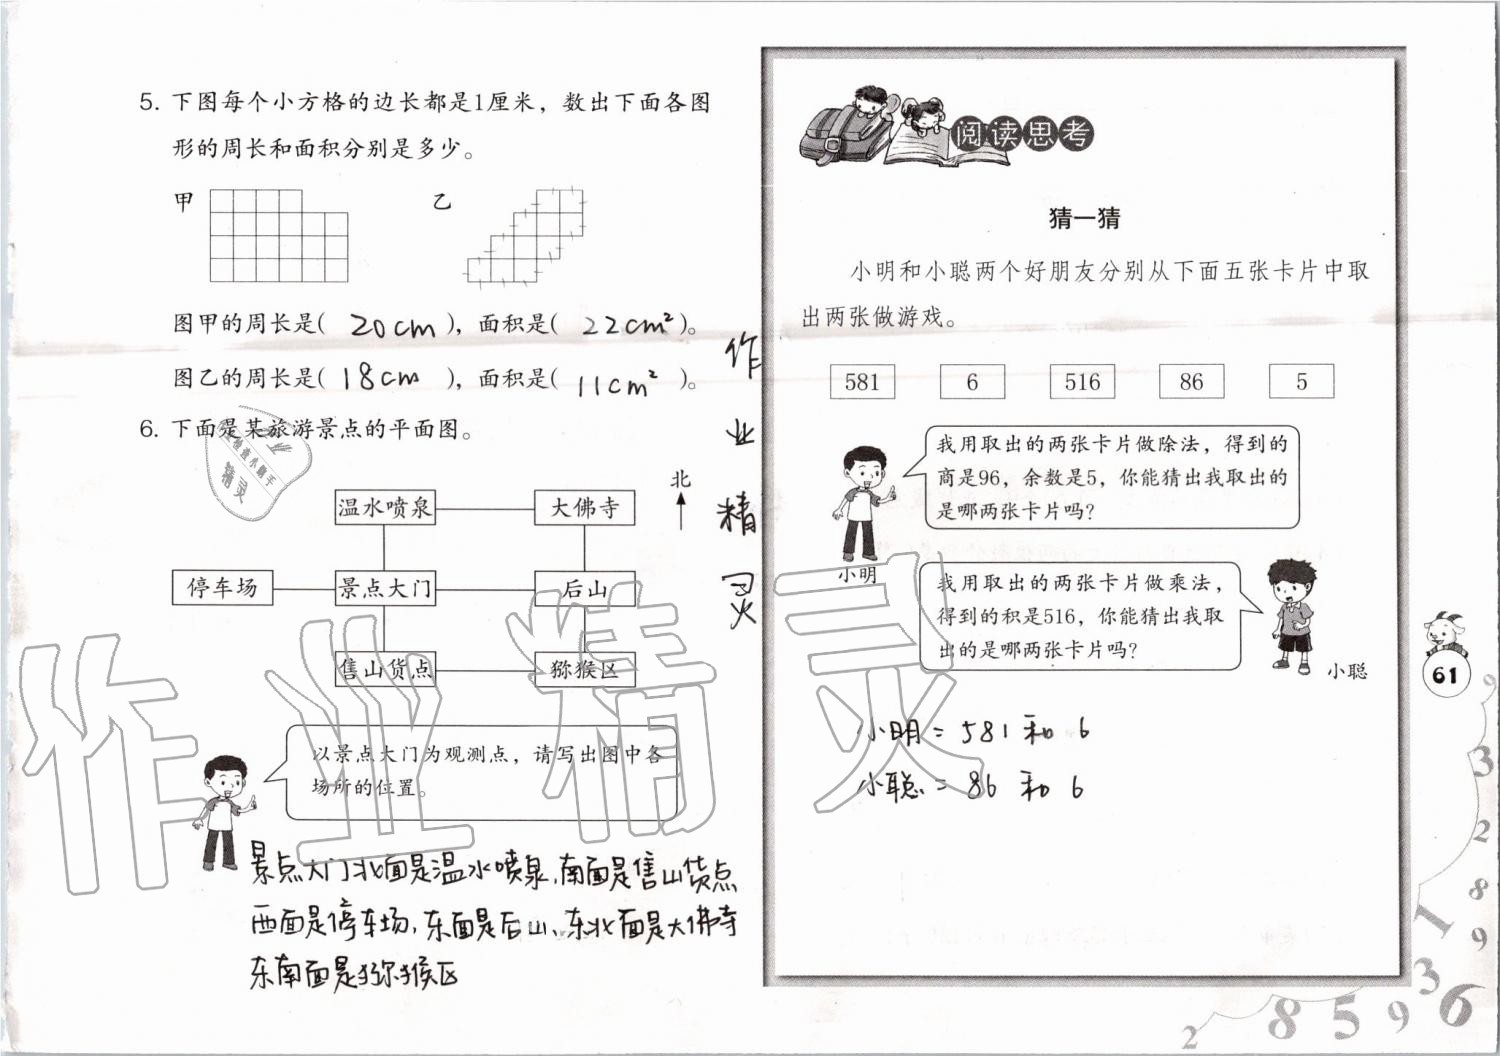 5. 下图每个小方格的边长都是1厘米，数出下面各图
形的周长和面积分别是多少。
甲
乙
图甲的周长是( 20cm )，面积是( 22cm² )。
图乙的周长是( 18cm )，面积是( 11cm² )。
6. 下面是某旅游景点的平面图。
北
温水喷泉 大佛寺
停车场 景点大门 后山
售山货点 猕猴区
以景点大门为观测点，请写出图中各
场所的位置。
景点大门北面是温水喷泉，南面是售山货点
西面是停车场，东面是后山、东北面是大佛寺
东南面是猕猴区
作
业
精
灵
作业精灵
精灵
阅读思考
猜一猜
小明和小聪两个好朋友分别从下面五张卡片中取
出两张做游戏。
581 6 516 86 5
我用取出的两张卡片做除法，得到的
商是96，余数是5，你能猜出我取出的
是哪两张卡片吗？
小明
我用取出的两张卡片做乘法，
得到的积是516，你能猜出我取
出的是哪两张卡片吗？
小聪
小明=581 和 6
小聪=86 和 6
61
9
3
2
8
1
9
3
6
2 8 5 9